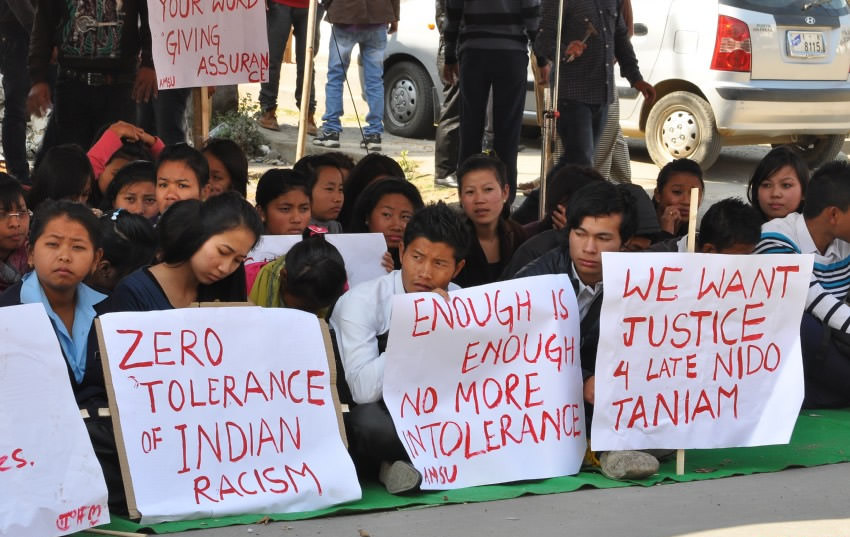 YOUR WORD
"GIVING
ASSURANCE
AMSU
ZERO
"TOLERANCE
OF INDIAN
RACISM
ENOUGH IS
ENOUGH
NO MORE
INTOLERANCE
AMSU
WE WANT
JUSTICE
4 LATE NIDO
TANIAM
8115